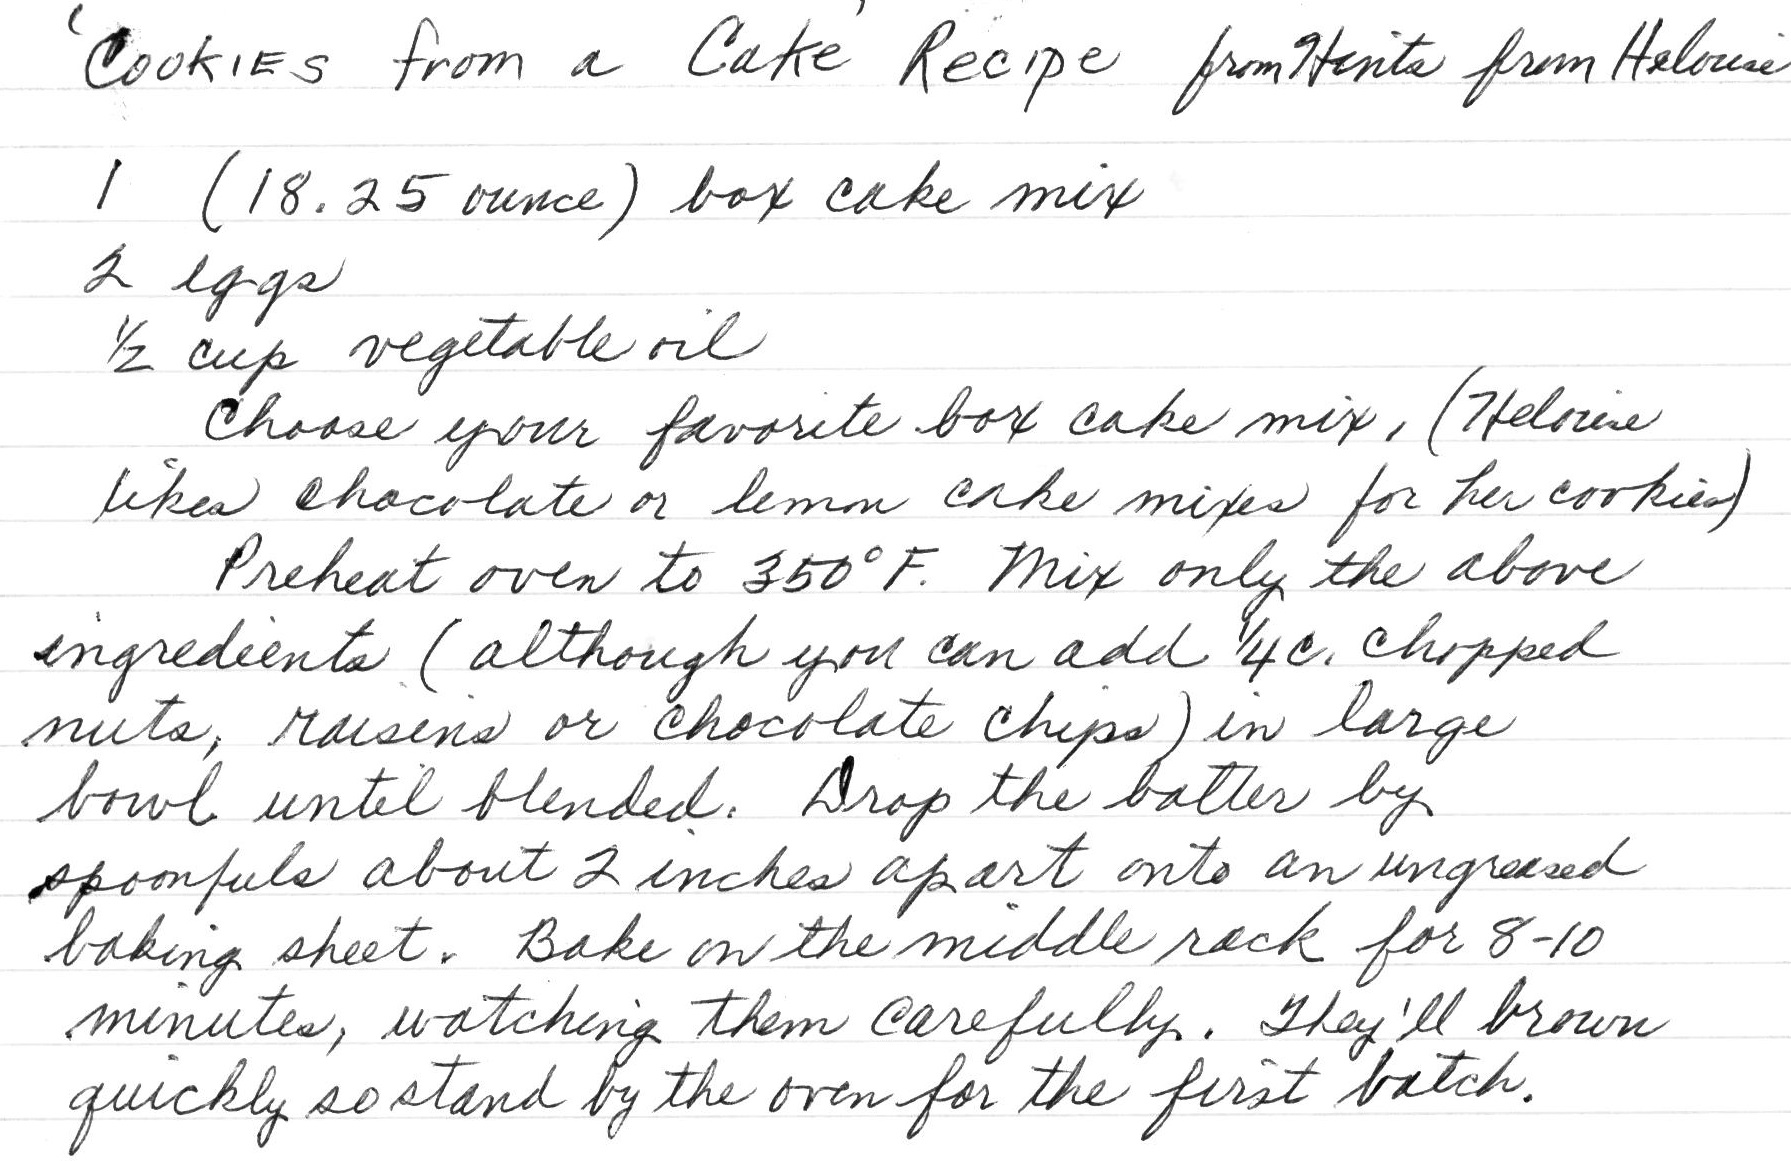 'Cookies from a Cake' Recipe from Hints from Heloise
1 (18.25 ounce) box cake mix
2 eggs
1/2 cup vegetable oil
Choose your favorite box cake mix, (Heloise
likes chocolate or lemon cake mixes for her cookies)
Preheat oven to 350° F. Mix only the above
ingredients (although you can add 1/4 c. chopped
nuts, raisins or chocolate chips) in large
bowl until blended. Drop the batter by
spoonfuls about 2 inches apart onto an ungreased
baking sheet. Bake on the middle rack for 8-10
minutes, watching them carefully. They'll brown
quickly so stand by the oven for the first batch.